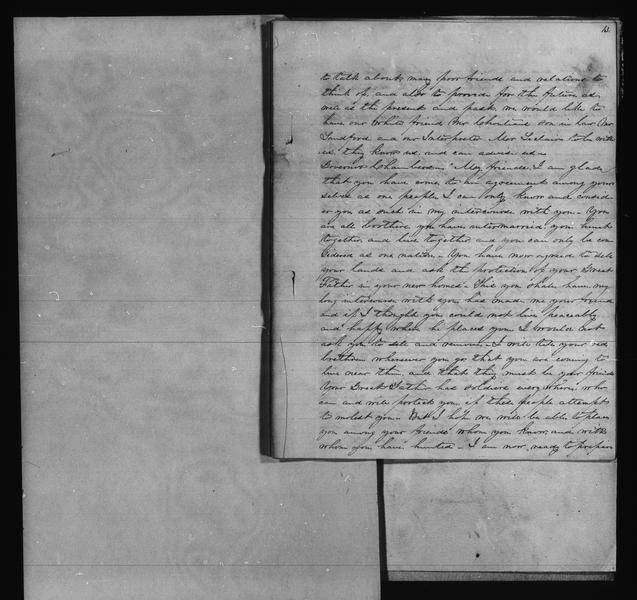 12
to talk about, many poor friends and relations to
think of, and also to provide for the future as
well as the present and past, we would like to
have our White friend Mr Chouteau's son in law Mr
Sandford and our Interpreter Mr Leclaire to be with
us they know us and can advise us—
Governor Chambers— "My friends I am glad
that you have come to an agreement among your
selves as one people I can only know and consid
er you as such in my intercourse with you— You
are all brothers you have intermarried you hunt
together and live together and you can only be con
sidered as one nation— You have now agreed to sell
your lands and ask the protection of your Great
Father in your new homes— This you shall have, my
long intercourse with you has made me your friend
and if I thought you could not live peaceably
and happy when he places you I would not
ask you to sell and remove— I will tell your red
brethren wherever you go that you are coming to
live near them, and that they must be your friends
Your Great Father has soldiers every where, who
can and will protect you if these people attempt
to molest you— But I hope we will be able to place
you among your friends whom you know and with
whom you have hunted— I am now ready to prepare